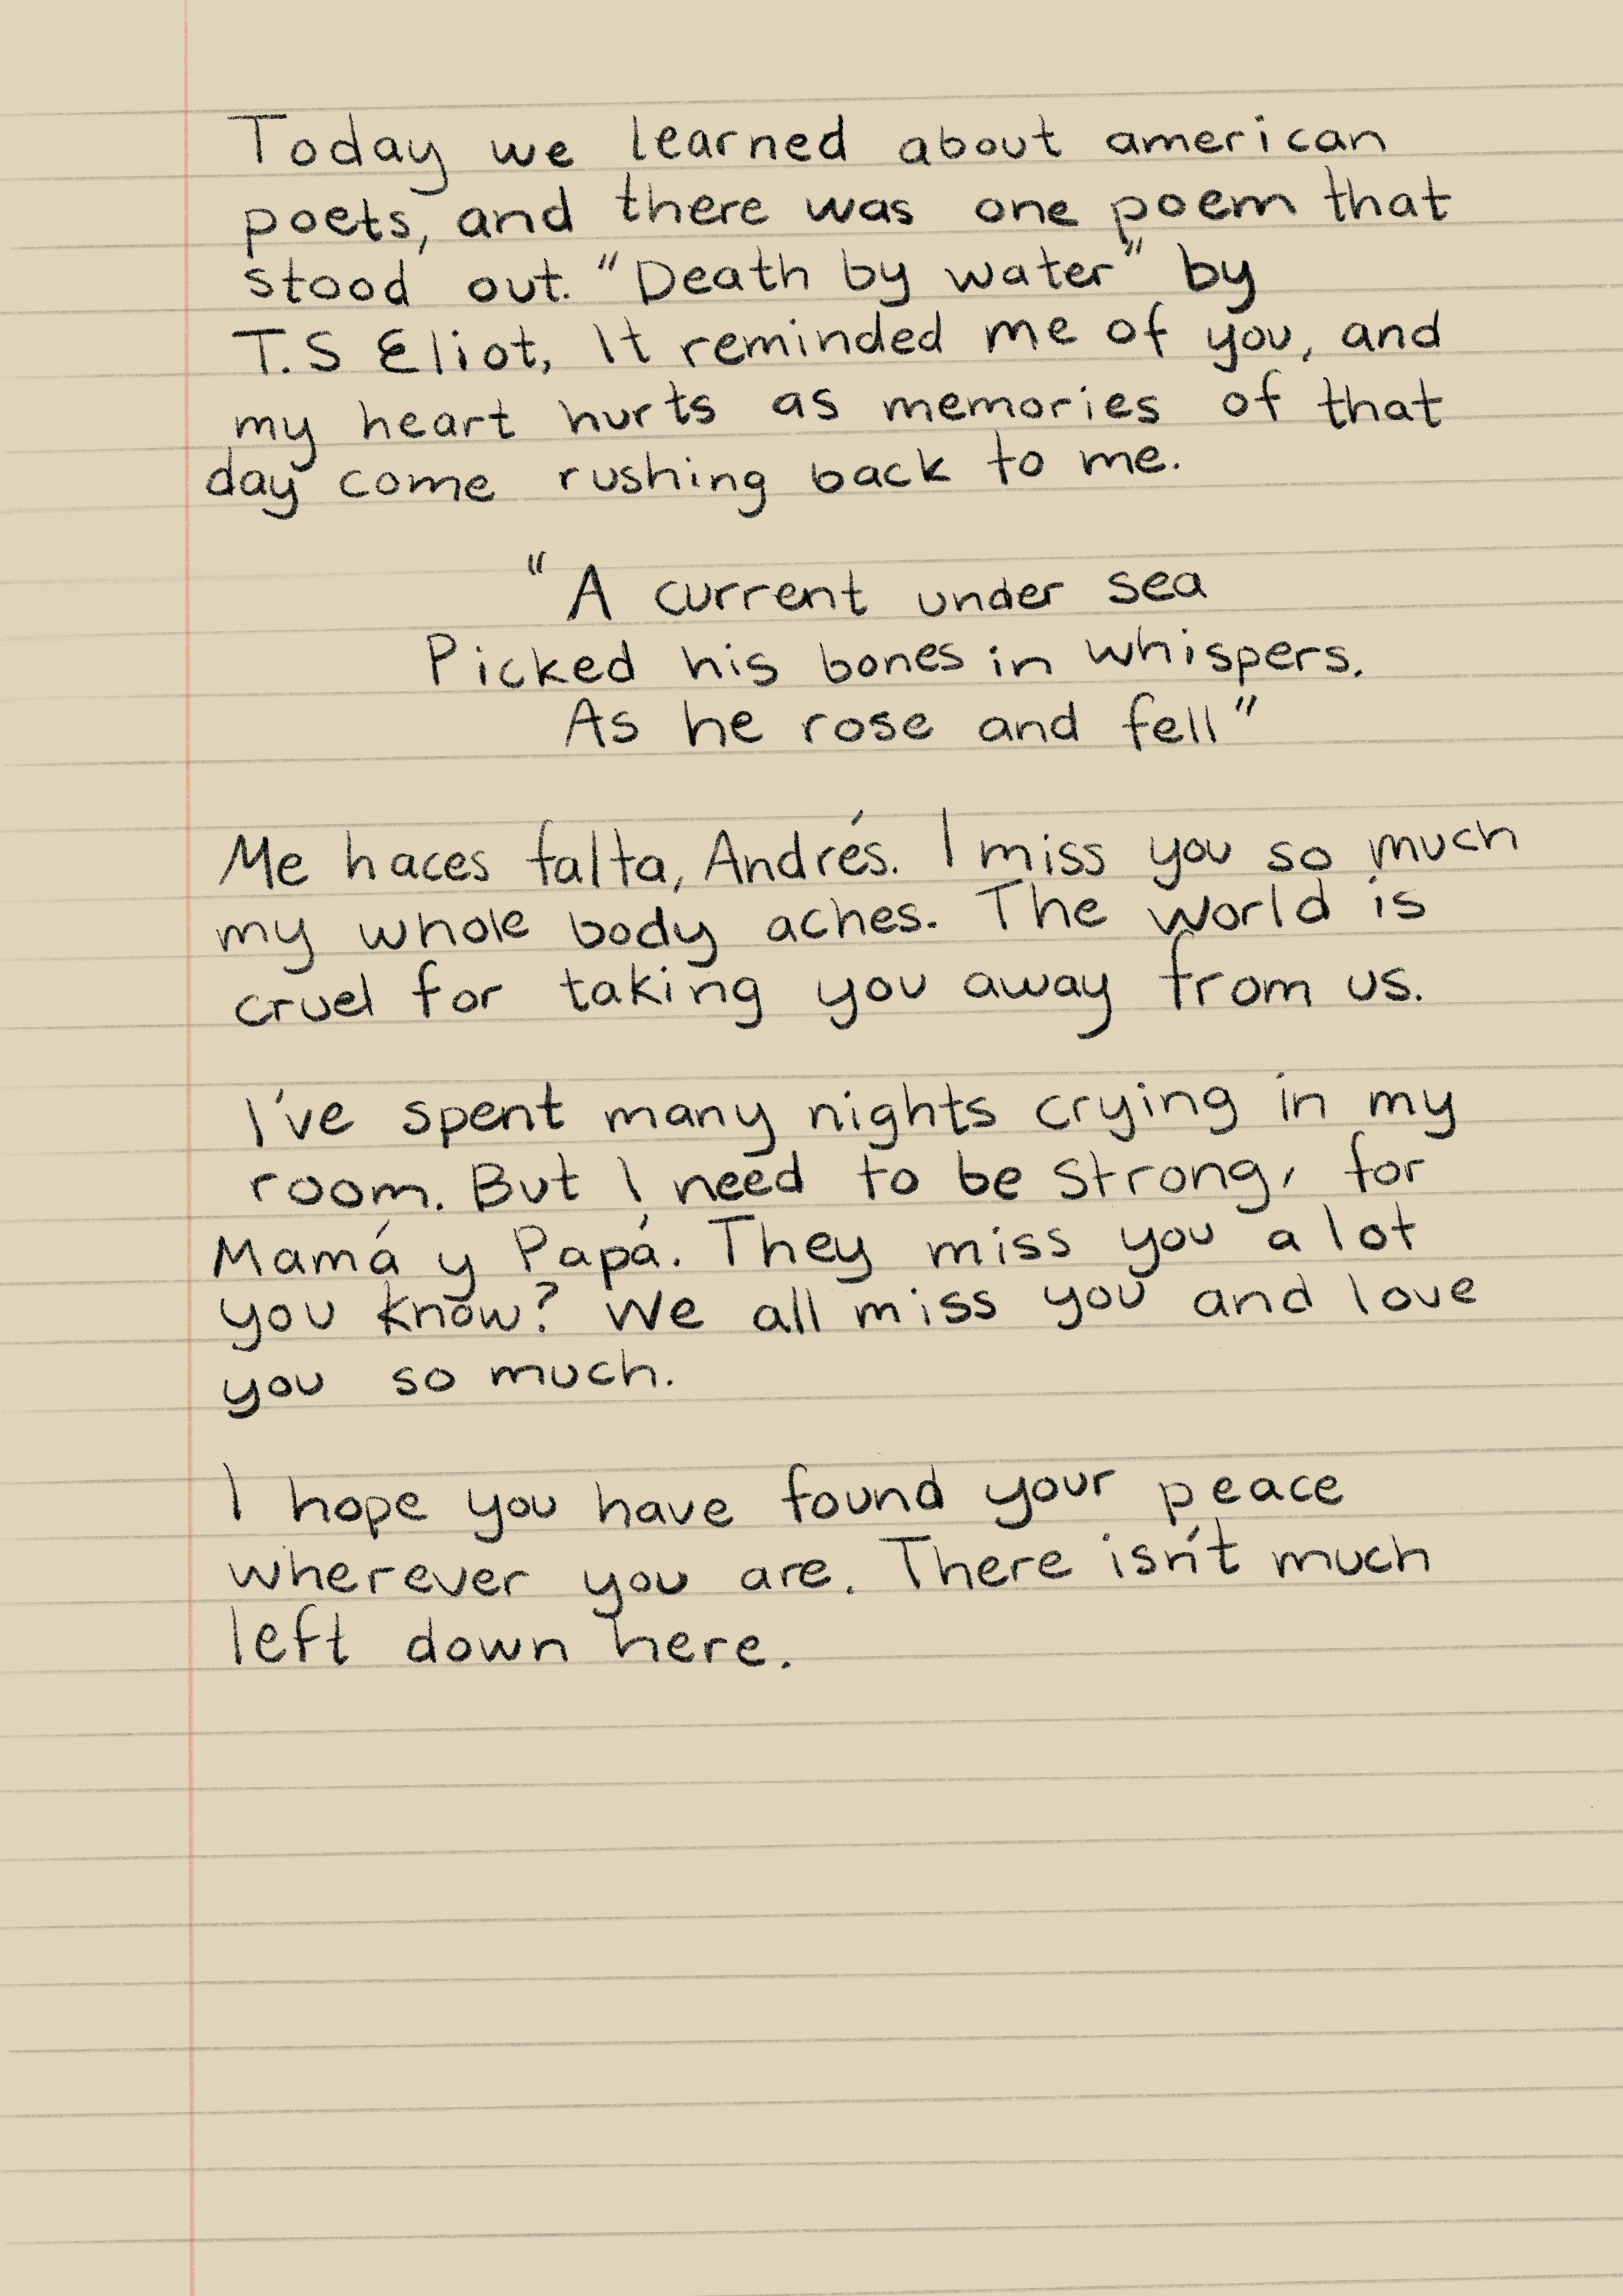 Today we learned about american
poets, and there was one poem that
stood out. "Death by water" by
T.S Eliot, It reminded me of you, and
my heart hurts as memories of that
day come rushing back to me.
"A current under sea
Picked his bones in whispers.
As he rose and fell"
Me haces falta, Andrés. I miss you so much
my whole body aches. The world is
cruel for taking you away from us.
I've spent many nights crying in my
room. But I need to be strong, for
Mamá y Papá. They miss you a lot
you know? We all miss you and love
you so much.
I hope you have found your peace
wherever you are. There isn't much
left down here.